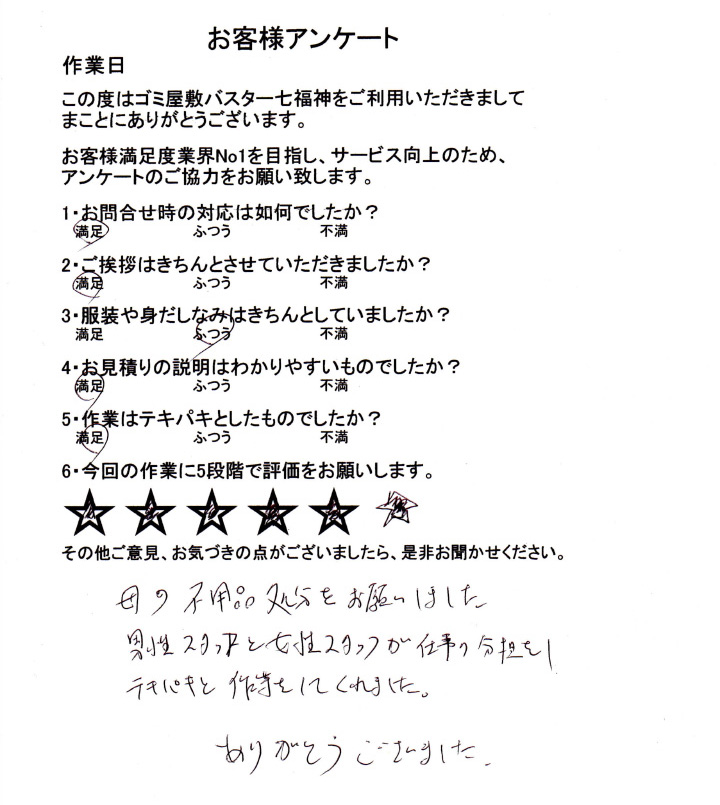 お客様アンケート
作業日
この度はゴミ屋敷バスター七福神をご利用いただきまして
まことにありがとうございます。
お客様満足度業界No1を目指し、サービス向上のため、
アンケートのご協力をお願い致します。
1・お問合せ時の対応は如何でしたか？
満足 ふつう 不満
2・ご挨拶はきちんとさせていただきましたか？
満足 ふつう 不満
3・服装や身だしなみはきちんとしていましたか？
満足 ふつう 不満
4・お見積りの説明はわかりやすいものでしたか？
満足 ふつう 不満
5・作業はテキパキとしたものでしたか？
満足 ふつう 不満
6・今回の作業に5段階で評価をお願いします。
その他ご意見、お気づきの点がございましたら、是非お聞かせください。
母の不用品処分をお願いしました
男性スタッフと女性スタッフが仕事の分担をし
テキパキと作業をしてくれました。
ありがとうございました。